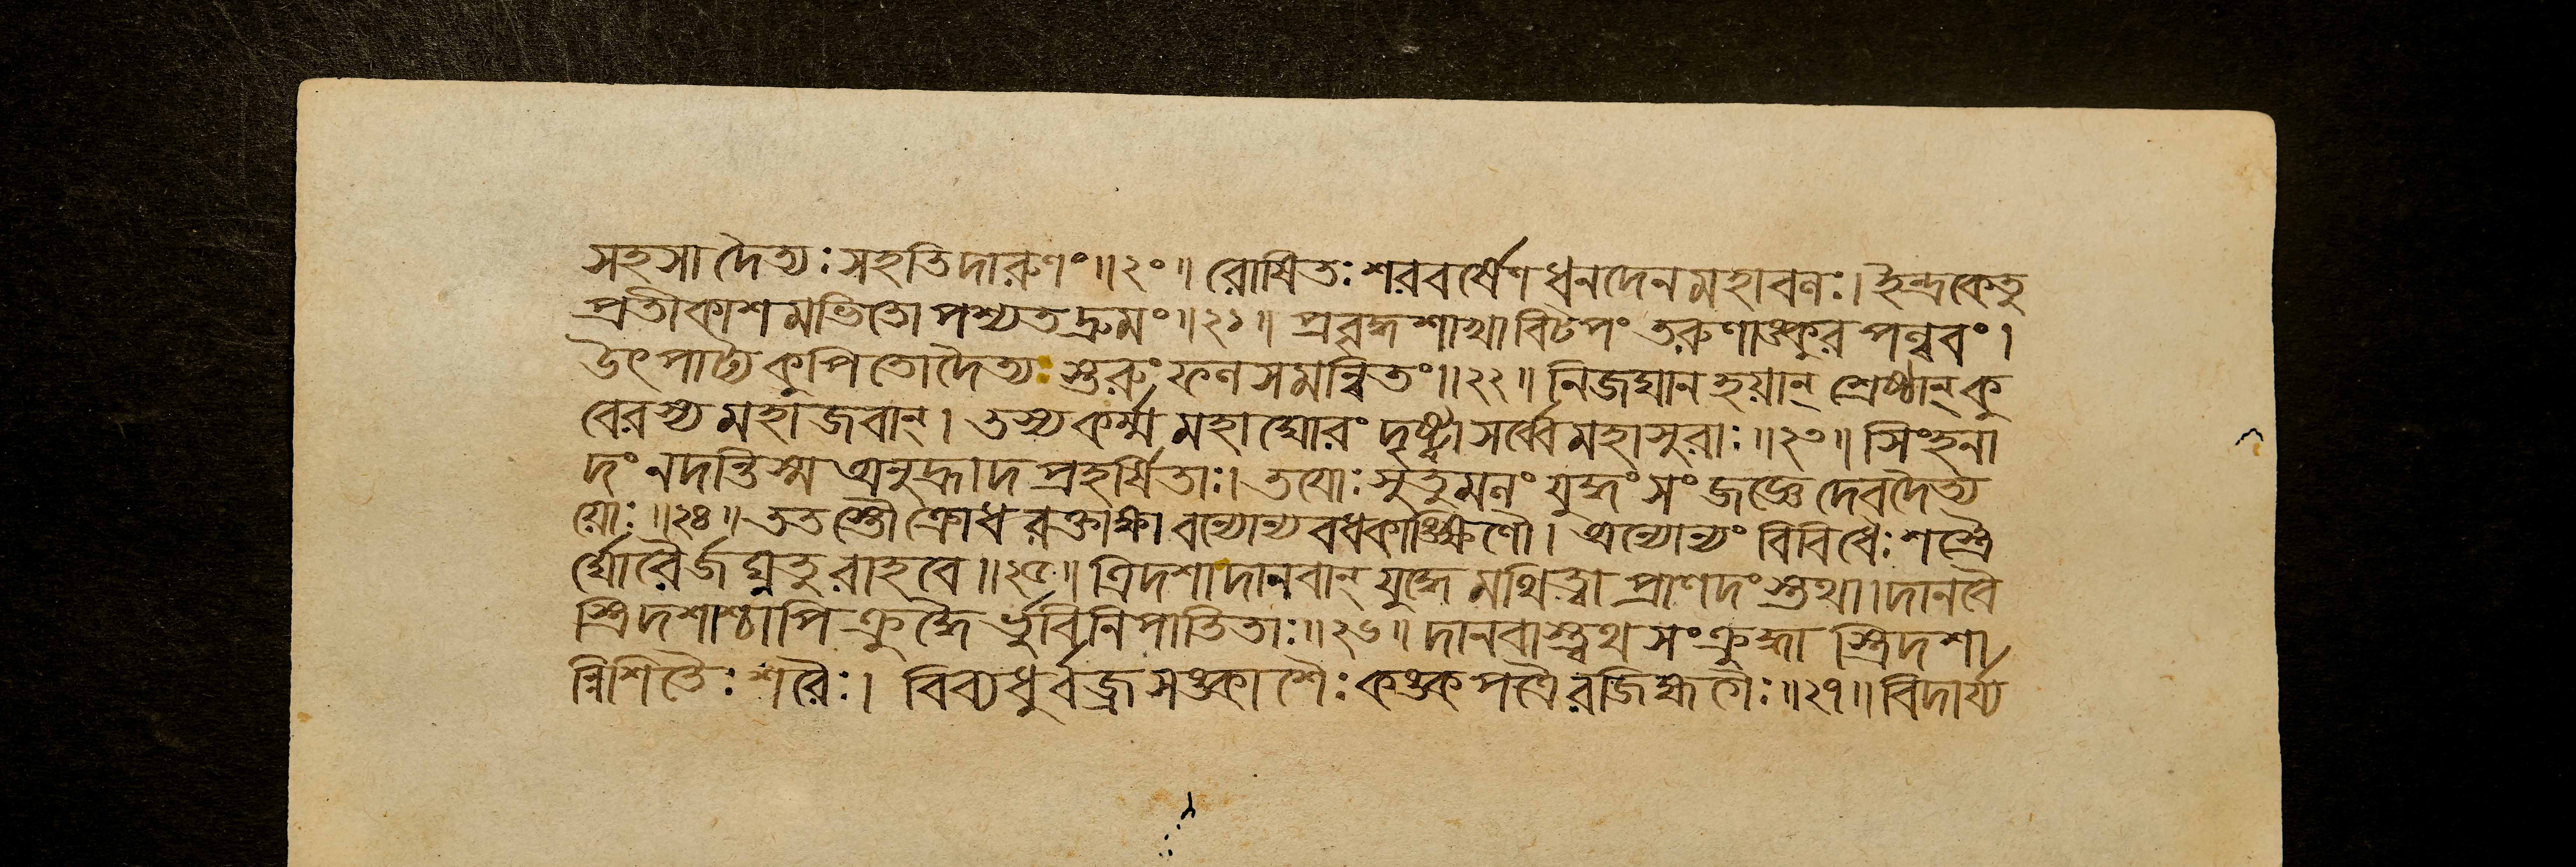 সহসা দৈত্যঃ সহতিদারুণং॥২০॥ রোষিতঃ শরবর্ষেণ ধনদেন মহাবলঃ। ইন্দ্রকেতু
প্রতীকাশমভিতোপশ্যত দ্রুমং॥২১॥ প্রবৃদ্ধশাখাবিটপং তরুণাঙ্কুরপল্লবং।
উৎপাট্য কুপিতো দৈত্যঃ স্তরুং ফলসমন্বিতং॥২২॥ নিজঘান হয়ান্ শ্রেষ্ঠান্ কু
বেরস্য মহাজবান্। তস্য কর্ম্ম মহাঘোরং দৃষ্ট্বা সর্ব্বে মহাসুরাঃ॥২৩॥ সিংহনা
দং নদন্তিস্ম অনুহ্রাদ প্রহর্ষিতাঃ। তযোঃ সুতুমলং যুদ্ধং সংজজ্ঞে দেবদৈত্য
য়োঃ॥২৪॥ ততস্তৌ ক্রোধরক্তাক্ষা বন্যোন্যবধকাঙ্ক্ষিণৌ। অন্যোন্যং বিবিধৈঃ শস্ত্রৈ
র্ঘোরৈর্জঘ্নতুরাহবে॥২৫॥ ত্রিদশা দানবান্ যুদ্ধে মথিত্বা প্রাণদংস্তথা। দানবৈ
স্ত্রিদশাশ্চাপি ক্রুদ্ধৈর্ভুবি নিপাতিতাঃ॥২৬॥ দানবাস্ত্বথ সংক্রুদ্ধা স্ত্রিদশা
ন্নিশিতৈঃ শরৈঃ। বিব্যধুর্বজ্রসঙ্কাশৈঃ কঙ্কপত্রৈরজিহ্মগৈঃ॥২৭॥ বিদার্য্য